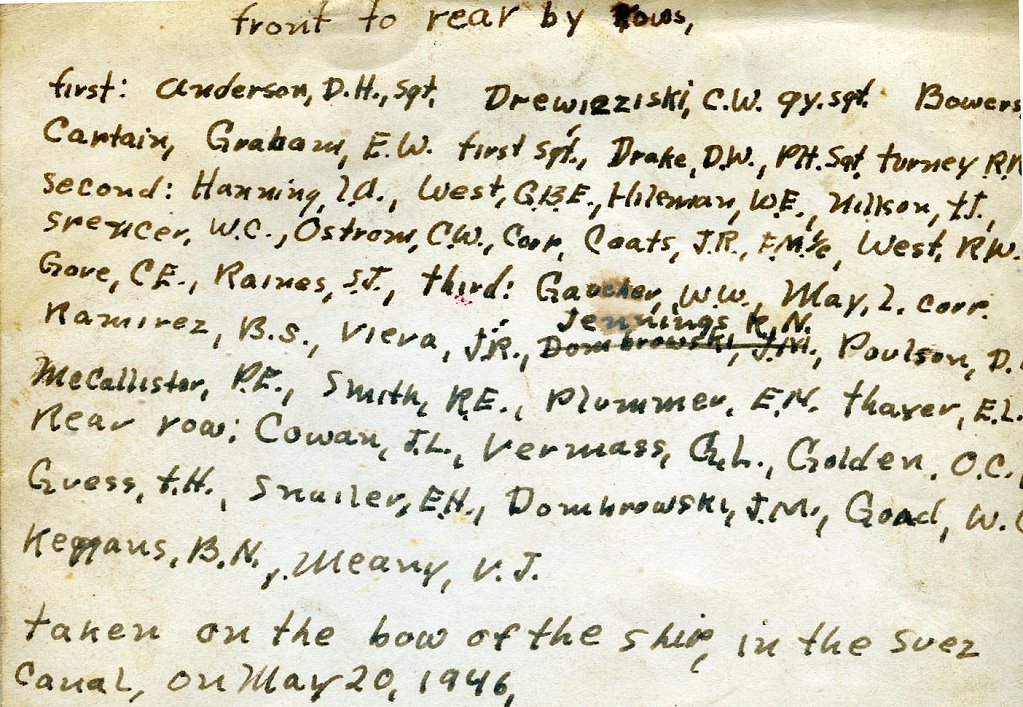 front to rear by rows,
first: Anderson, D.H., Sgt, Drewizziski, C.W. gy.sgt. Bowers,
Captain, Graham, E.W. first sgt., Drake, D.W., PH.Sgt, turney R.
second: Hanning, I.A., West, G.B.E., Hileman, W.E., Nilkon, t.J.,
Spencer, W.C., Ostrom, C.W., Corp, Coats, J.R., West, R.W.
Gore, C.E., Raines, S.J., third: Gaucher, W.W., May, L. corp.
Jennings, R.N.
Ramirez, B.S., Viera, J.R., Dombrowski, J.M., Poulson, D.
McCallister, P.E., Smith, R.E., Plummer, E.N. thaxer, E.L.
Rear row: Cowan, J.L., Vermass, G.L., Golden, O.C.,
Guess, t.H., Smailer, E.H., Dombrowski, J.M., Goad, W.
Keggans, B.N., Meany, V.J.
taken on the bow of the ship, in the suez
Canal, on May 20, 1946,